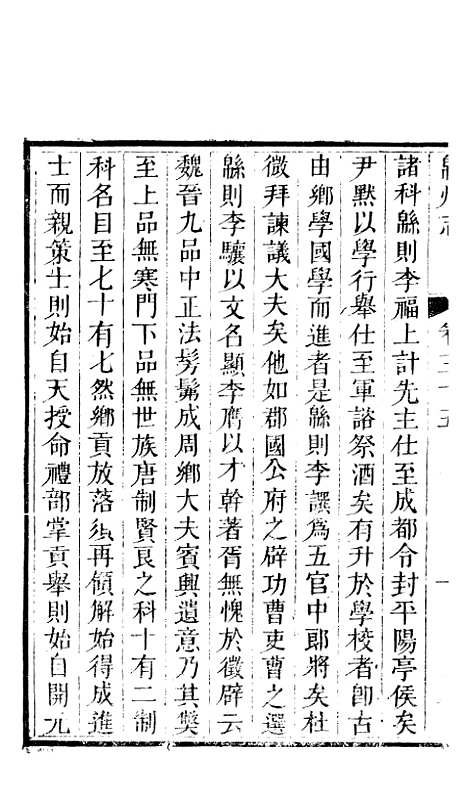 諸科緜則李福上計先主仕至成都令封平陽亭侯矣
尹默以學行舉仕至軍諮祭酒矣有升於學校者卽古
由鄉學國學而進者是緜則李譔爲五官中郎將矣杜
微拜諫議大夫矣他如郡國公府之辟功曹吏曹之選
緜則李驤以文名顯李膺以才幹著胥無愧於徵辟云
魏晉九品中正法髣髴成周鄉大夫賓興遺意乃其獘
至上品無寒門下品無世族唐制賢良之科十有二制
科名目至七十有七然鄉貢放落須再領解始得成進
士而親策士則始自天授命禮部掌貢舉則始自開元